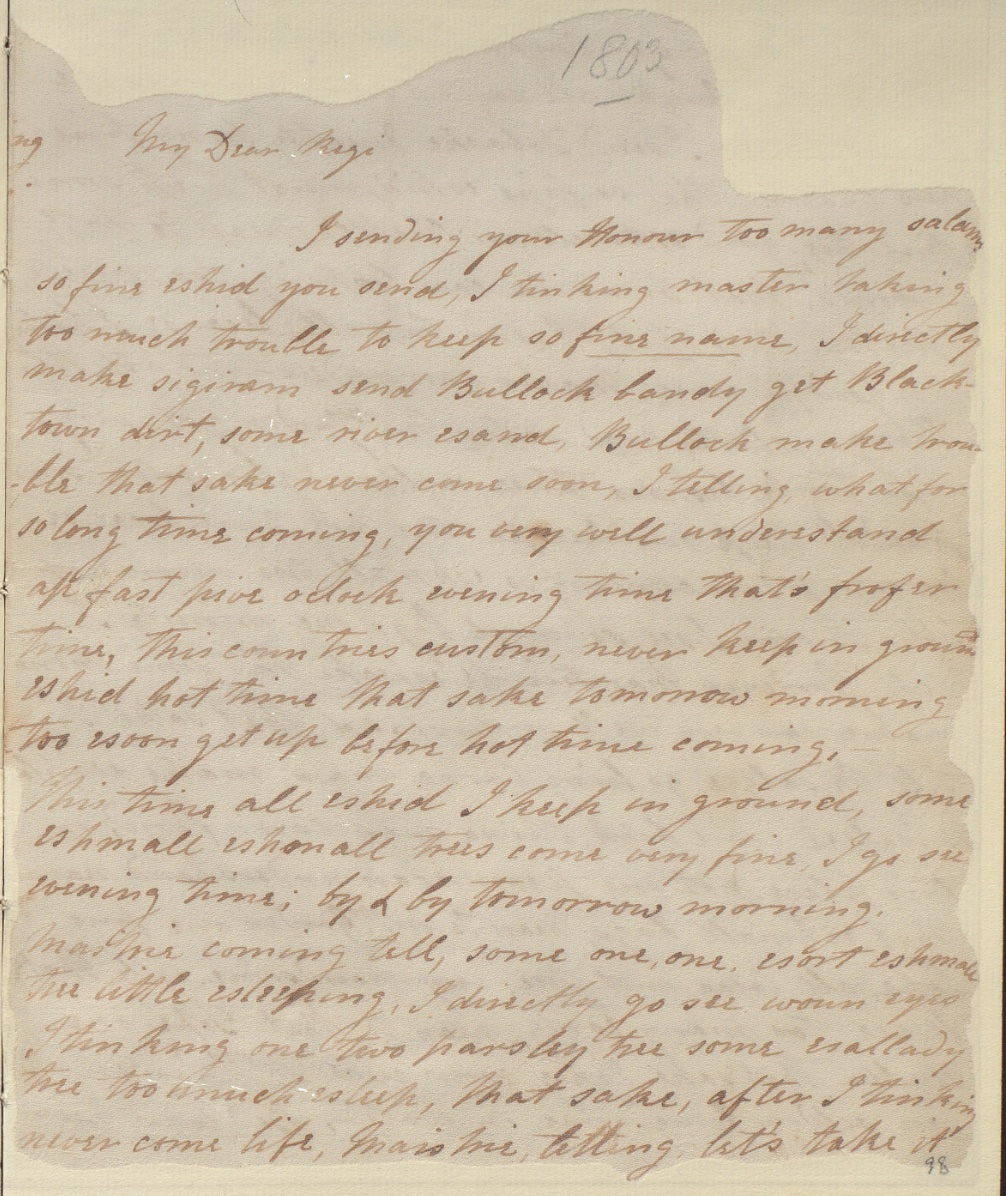 1803
ng My Dear Regi
I sending your Honour too many salams
so fine eshid you send, I tinking master taking
too much trouble to keep so fine name, I directly
make sigiram send Bullock bandy get Black-
town dirt, some river esand, Bullock make trou-
-ble that sake never come soon, I telling, what for
so long time coming, you very well understand
ap fast pive oclock evening time that's frofer
time, this countries custom, never keep in ground
eshid hot time that sake tomorrow morning
too esoon get up before hot time coming.
This time all eshid I keep in ground, some
eshmall eshmall trees come very fine, I go see
evening time; by & by tomorrow morning.
coming tell, some one, one, esort eshmall
tree little esleeping, I directly go see woun eyes
I tinking one two parsley tree some esallady
tree too much esleep, that sake, after I tinking
never come life, telling let's take it
98